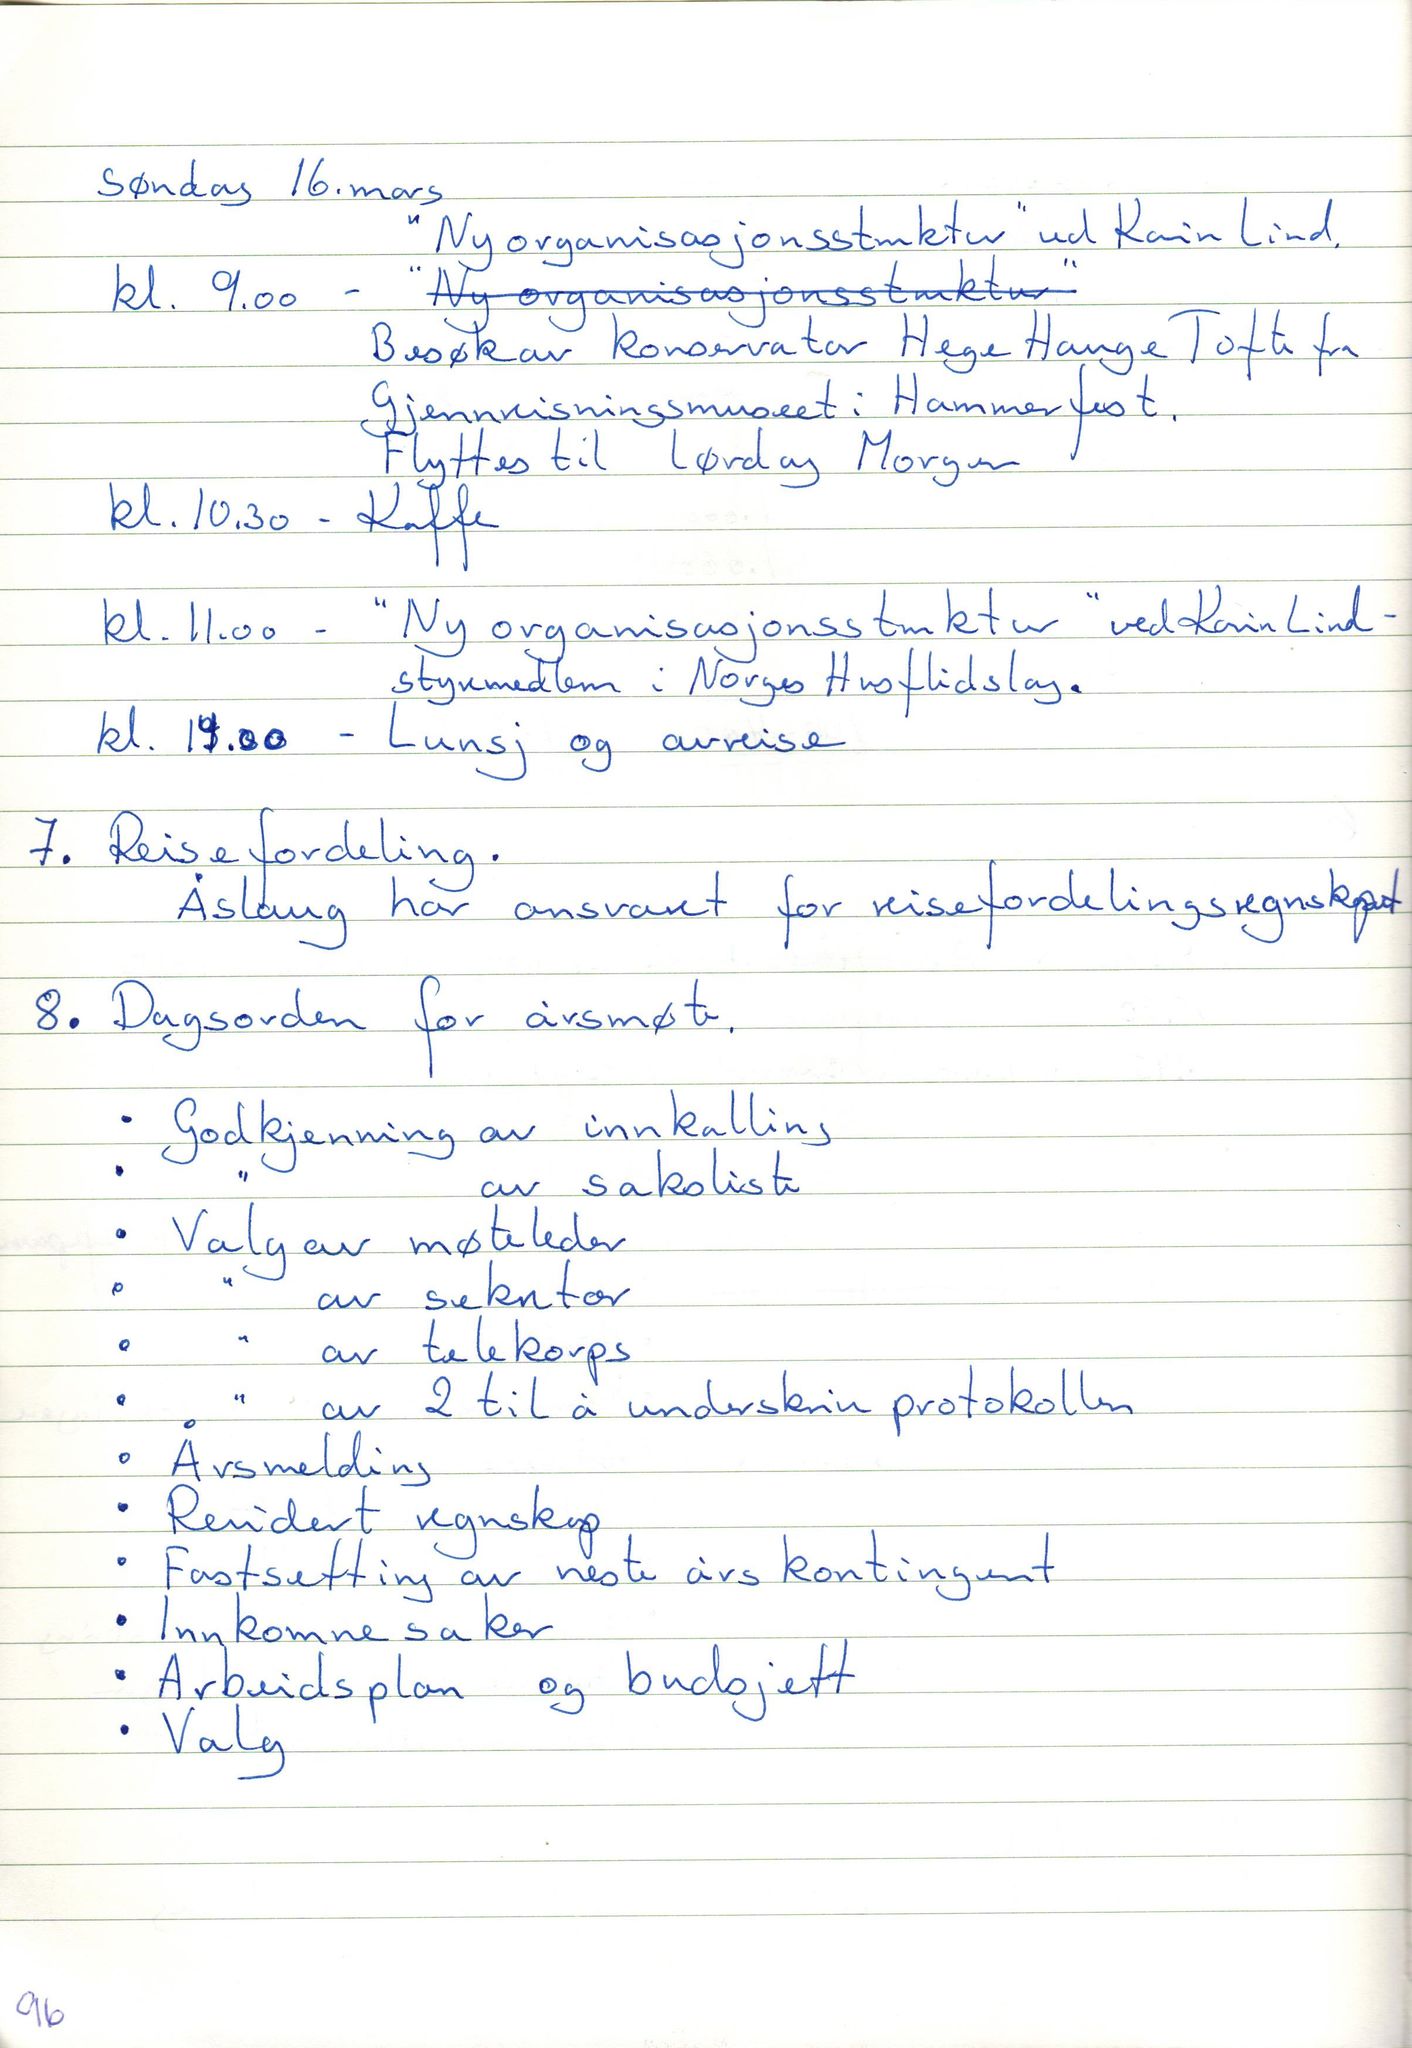 søndag 16. mars
"Ny organisasjonsstruktur" ved Karin Lind.
kl. 9.00 - "Ny organisasjonsstruktur"
Besøk av konservator Hege Hauge Tofte fra
Gjenreisningsmuseet i Hammerfest.
Flyttes til Lørdag Morgen
kl. 10.30 - Kaffe
kl. 11.00 - "Ny organisasjonsstruktur" ved Karin Lind -
styremedlem i Norges Husflidslag.
kl. - Lunsj og avreise
7. Reisefordeling.
Åslaug har ansvaret for reisefordelingsregnskapet
8. Dagsorden for årsmøte.
• Godkjenning av innkalling
• " av saksliste
• Valg av møteleder
• " av sekretær
• " av telekorps
• " av 2 til å underskrive protokollen
• Årsmelding
• Revidert regnskap
• Fastsetting av neste års kontingent
• Innkomne saker
• Arbeidsplan og budsjett
• Valg
96